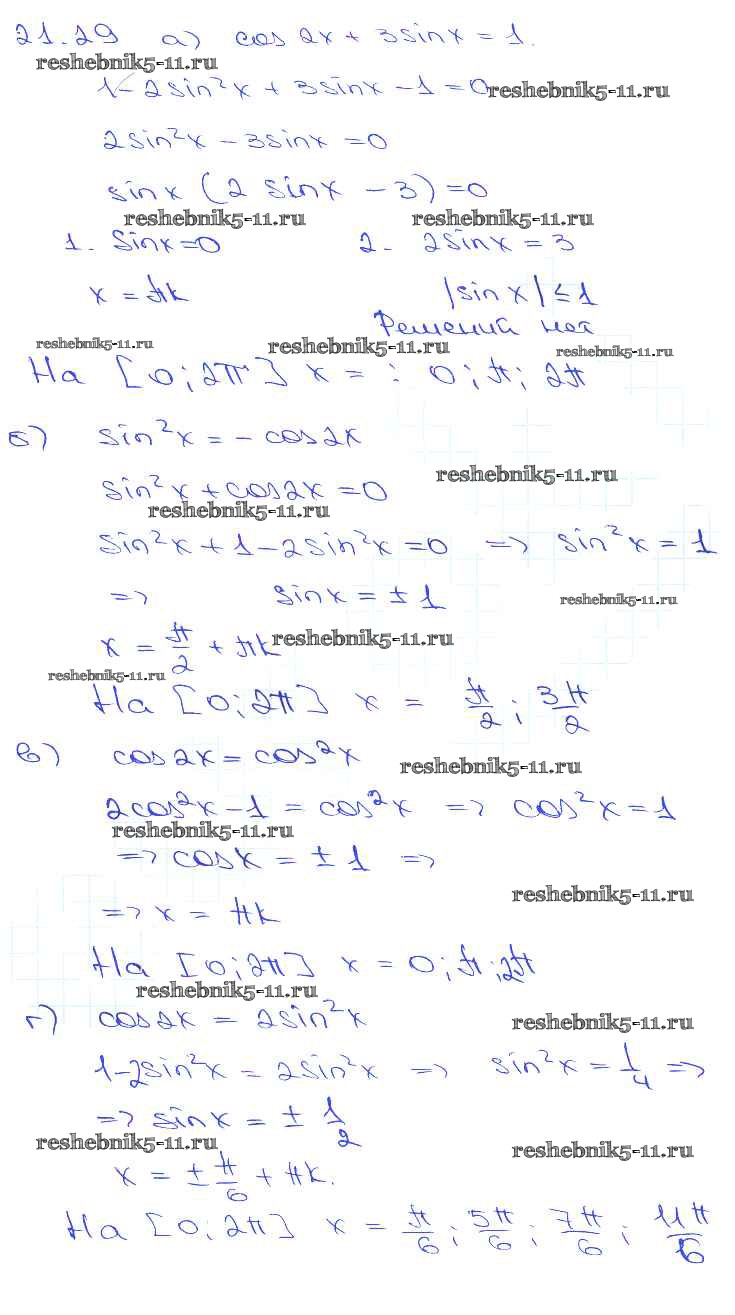 21.29 а) cos 2x + 3sinx = 1.
reshebnik5-11.ru
1-2sin²x + 3sinx - 1 = 0 reshebnik5-11.ru
2sin²x - 3sinx = 0
sinx (2 sinx - 3) = 0
reshebnik5-11.ru reshebnik5-11.ru
1. Sinx = 0 2. 2sinx = 3
x = πk |sin x| ≤ 1
Решений нет
reshebnik5-11.ru reshebnik5-11.ru reshebnik5-11.ru
На [0; 2π] x = : 0; π; 2π
б) sin²x = - cos2x
reshebnik5-11.ru
sin²x + cos2x = 0
reshebnik5-11.ru
sin²x + 1 - 2sin²x = 0 => sin²x = 1
=> sinx = ± 1 reshebnik5-11.ru
x = π/2 + πk reshebnik5-11.ru
reshebnik5-11.ru
На [0; 2π] x = π/2; 3π/2
в) cos2x = cos²x
reshebnik5-11.ru
2cos²x - 1 = cos²x => cos²x = 1
reshebnik5-11.ru
=> cosx = ± 1 =>
reshebnik5-11.ru
=> x = πk
На [0; 2π] x = 0; π; 2π
reshebnik5-11.ru
г) cos2x = 2sin²x reshebnik5-11.ru
1-2sin²x = 2sin²x => sin²x = 1/4 =>
=> sinx = ± 1/2
reshebnik5-11.ru reshebnik5-11.ru
x = ± π/6 + πk.
На [0; 2π] x = π/6; 5π/6; 7π/6; 11π/6